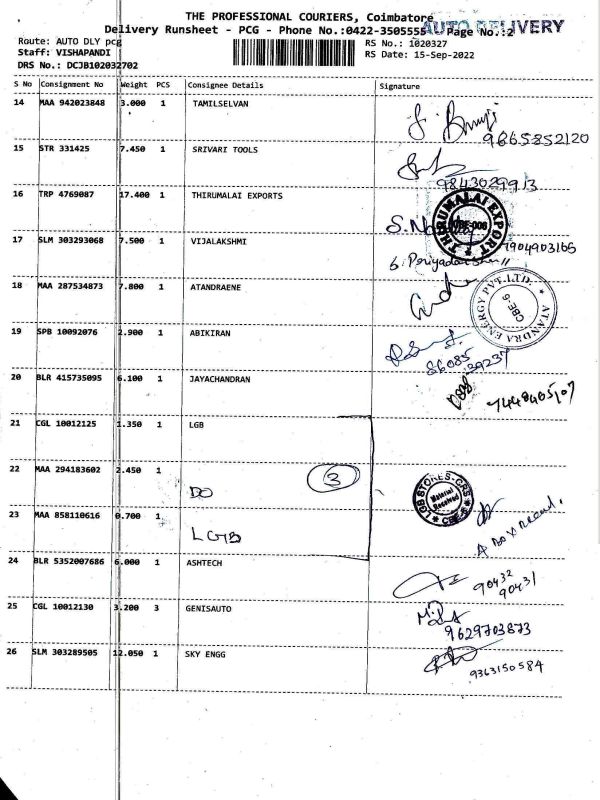 THE PROFESSIONAL COURIERS, Coimbatore
AUTO DELIVERY
Delivery Runsheet - PCG - Phone No.:0422-3505555 Page No.:2
Route: AUTO DLY pcg
RS No.: 1020327
Staff: VISHAPANDI
RS Date: 15-Sep-2022
DRS No.: DCJB102032702
S No Consignment No Weight PCS Consignee Details Signature
14 MAA 942023848 3.000 1 TAMILSELVAN
9865852120
15 STR 331425 7.450 1 SRIVARI TOOLS
9843029913
16 TRP 4769087 17.400 1 THIRUMALAI EXPORTS
THIRUMALAI EXPORT
CBE-006
17 SLM 303293068 7.500 1 VIJALAKSHMI
7904903165
18 MAA 287534873 7.800 1 ATANDRAENE
ATANDRA ENERGY PVT.LTD.
CBE-6
19 SPB 10092076 2.900 1 ABIKIRAN
86085
39237
20 BLR 415735095 6.100 1 JAYACHANDRAN
7448405107
21 CGL 10012125 1.350 1 LGB
22 MAA 294183602 2.450 1
DO
3
LGB STORES-CRS
Material
Received
CBE-6
23 MAA 858110616 0.700 1
LGB
24 BLR 5352007686 6.000 1 ASHTECH
90432
90431
25 CGL 10012130 3.200 3 GENISAUTO
9629703873
26 SLM 303289505 12.050 1 SKY ENGG
9363150584